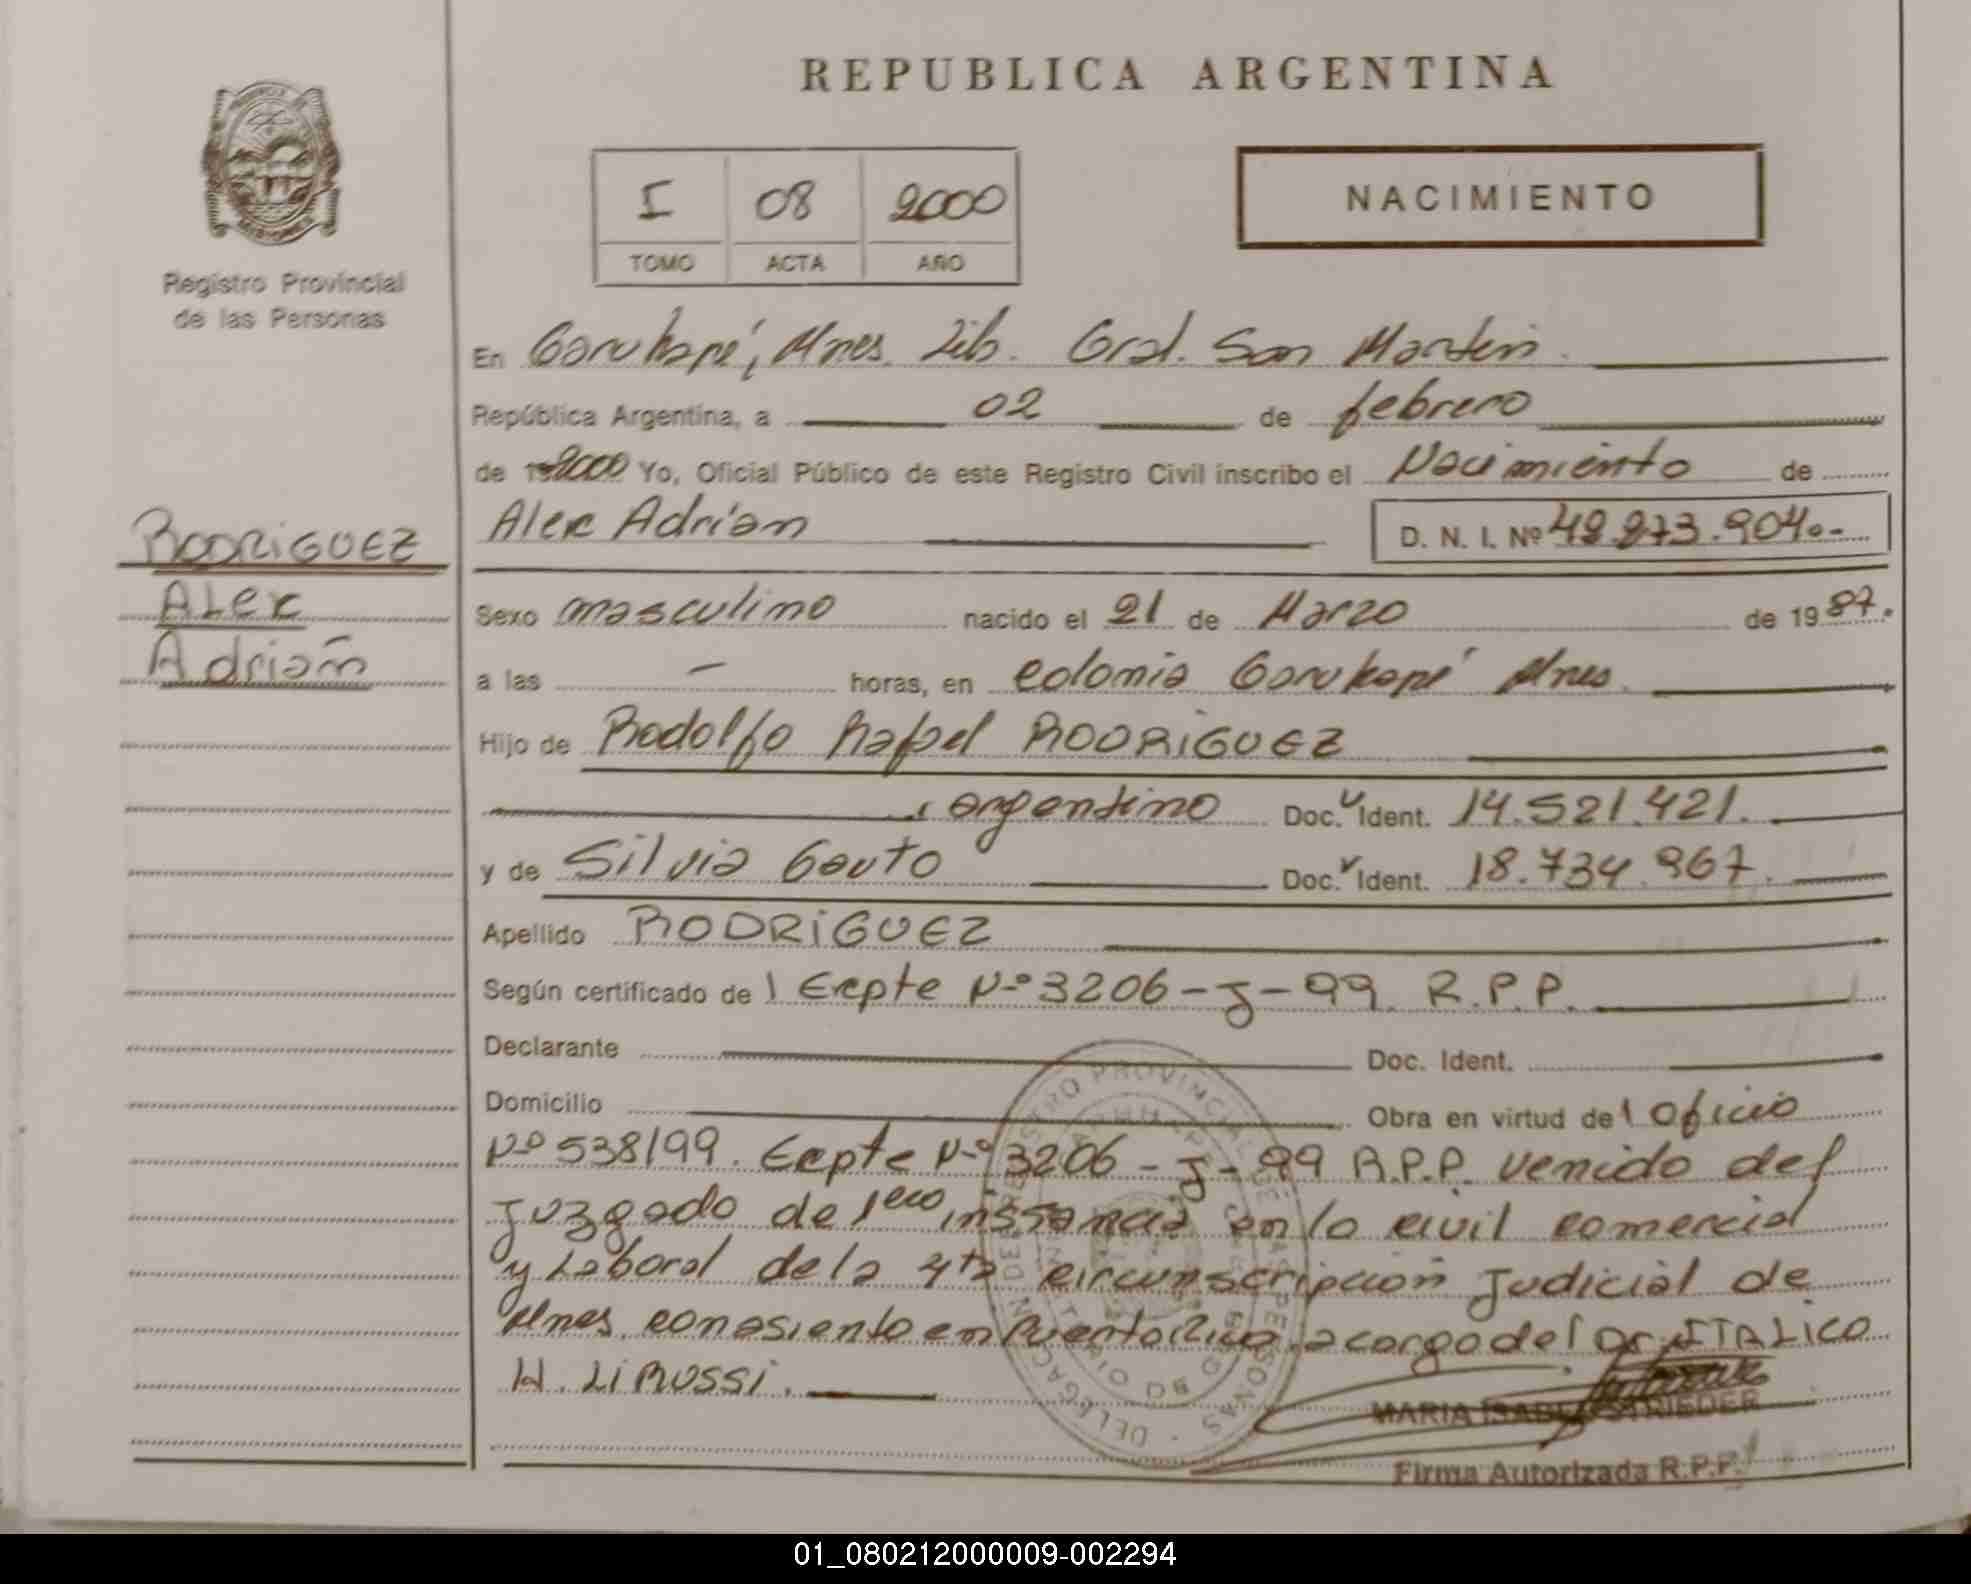 REPUBLICA ARGENTINA
NACIMIENTO
I 08 2000
TOMO ACTA AÑO
Registro Provincial
de las Personas
En Garuhapé, Mnes. Lib. Gral. San Martín.
República Argentina, a 02 de febrero
de 2000 Yo, Oficial Público de este Registro Civil inscribo el Nacimiento de
Alex Adrian D. N. I. Nº
RODRIGUEZ
Alex
Adrian
Sexo masculino nacido el 21 de Marzo de 1987.
a las — horas, en Colonia Garuhapé Mnes.
Hijo de Rodolfo Rafael RODRIGUEZ
, argentino Doc. Ident. 14.521.421.
y de Silvia Gauto Doc. Ident. 18.734.967.
Apellido RODRIGUEZ
Según certificado de Expte Nº 3206-J-99 R.P.P.
Declarante Doc. Ident.
Domicilio Obra en virtud de Oficio
Nº 538/99. Expte Nº 3206-J-99 R.P.P. venido del
Juzgado de 1era instancia en lo civil comercial
y Laboral de la 4ta circunscripcion Judicial de
Mnes. con asiento en Puerto Rico, a cargo del Dr. ITALICO
H. LIRUSSI.
MARIA ISABEL STRIEDER
Firma Autorizada R.P.P.
01_080212000009-002294